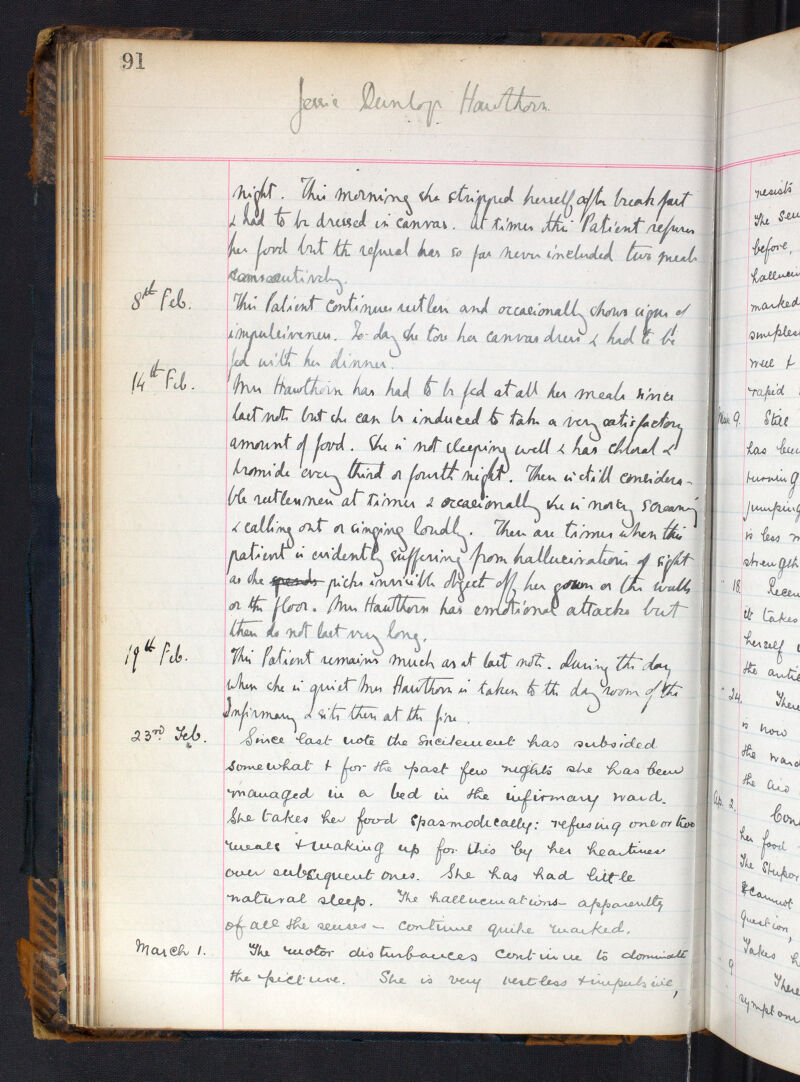 91
Jessie Dunlop Hawthorn.
night. This morning she stripped herself after breakfast
& had to be dressed in canvas. At times this Patient refuses
her food but the refusal has so far never included two meals
consecutively.
8th Feb.
This Patient continues restless and occasionally shows signs of
impulsiveness. To-day she tore her canvas dress & had to be
fed with her dinner.
14th Feb.
Mrs Hawthorn has had to be fed at all her meals since
last note but she can be induced to take a very satisfactory
amount of food. She is not sleeping well & has chloral &
bromide every third or fourth night. There is still considera-
ble restlessness at times & occasionally she is noisy screaming
& calling out or singing loudly. There are times when this
patient is evidently suffering from hallucinations of sight
as she picks invisible objects off her gown or the walls
or the floor. Mrs Hawthorn has emotional attacks but
these do not last very long.
19th Feb.
This Patient remains much as at last note. During the day
when she is quiet Mrs Hawthorn is taken to the day room of the
Infirmary & sits there at the fire.
23rd Feb.
Since last note the excitement has subsided
somewhat & for the past few nights she has been
managed in a bed in the infirmary ward.
She takes her food spasmodically: refusing one or two
meals & making up for this by her heartiness
over subsequent ones. She has had little
natural sleep. The hallucinations – apparently
of all the senses – continue quite marked.
March 1.
The motor disturbances continue to dominate
the picture. She is very restless & impulsive,
resists
The sen
before,
hallucin
marked
simples
well &
rapid
Mar 9.
Still
has been
turning
jumping
is less
strength
" 18.
Recen
it takes
herself
the
" 24.
There
is now
the ward
the aid
Ap. 2.
Con
her food
The stupor
& cannot
question,
Takes h
" 9
There
symptom